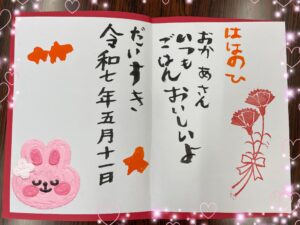 ははのひ
おかあさん
いつも
ごはんおいしいよ
だいすき
令和七年五月十一日